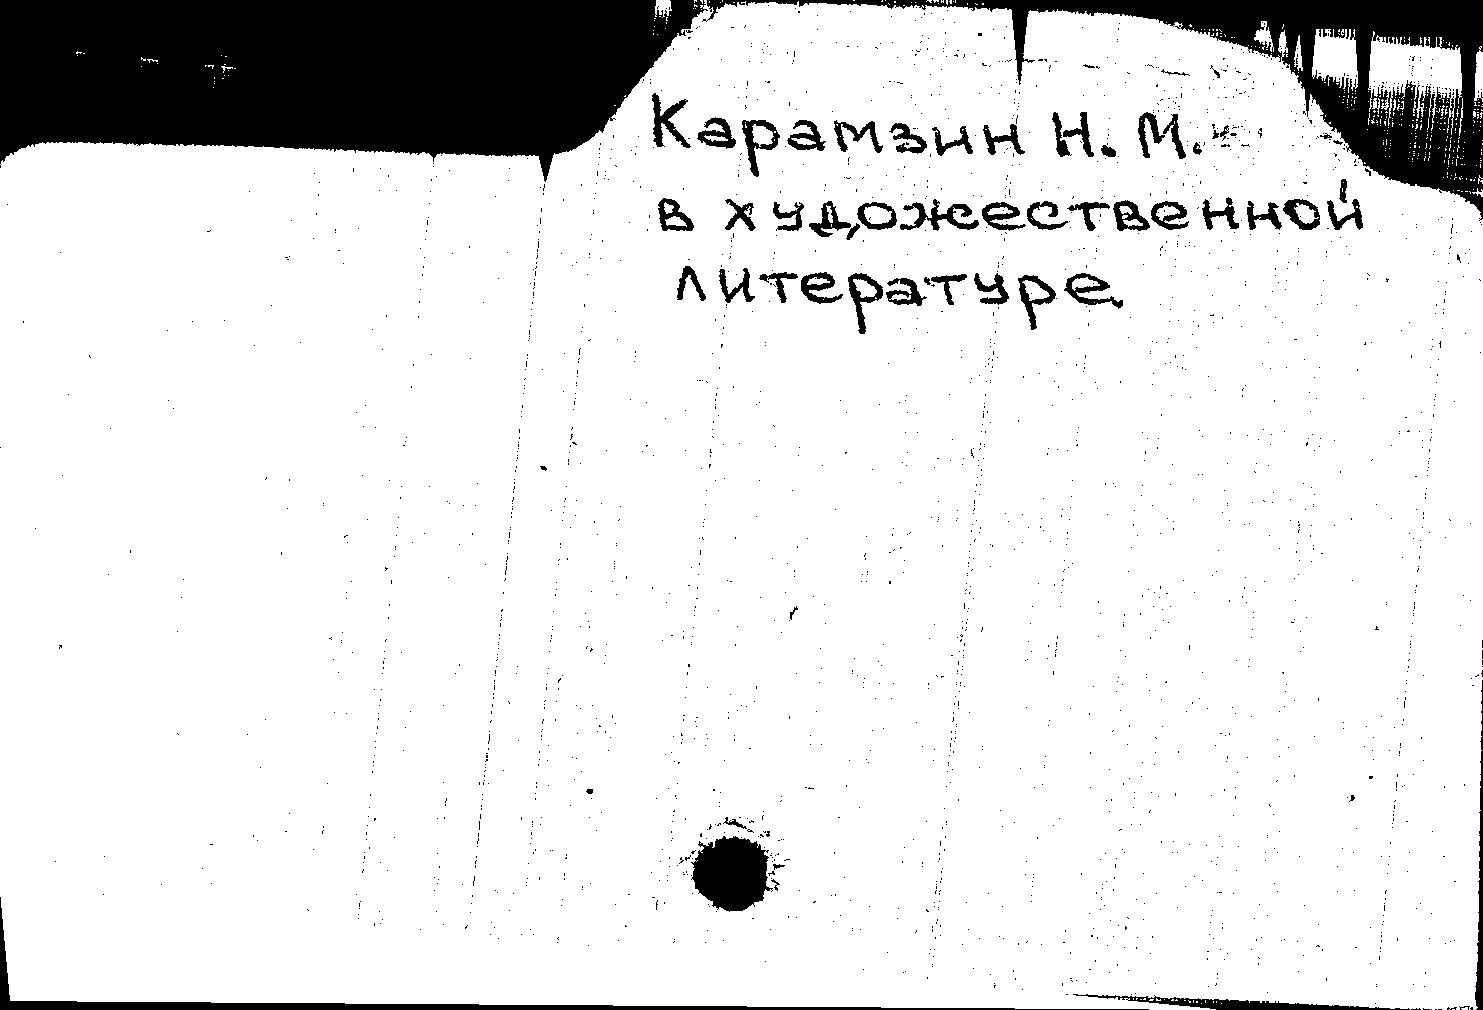 Карамзин Н. М.
в художественной
литературе.